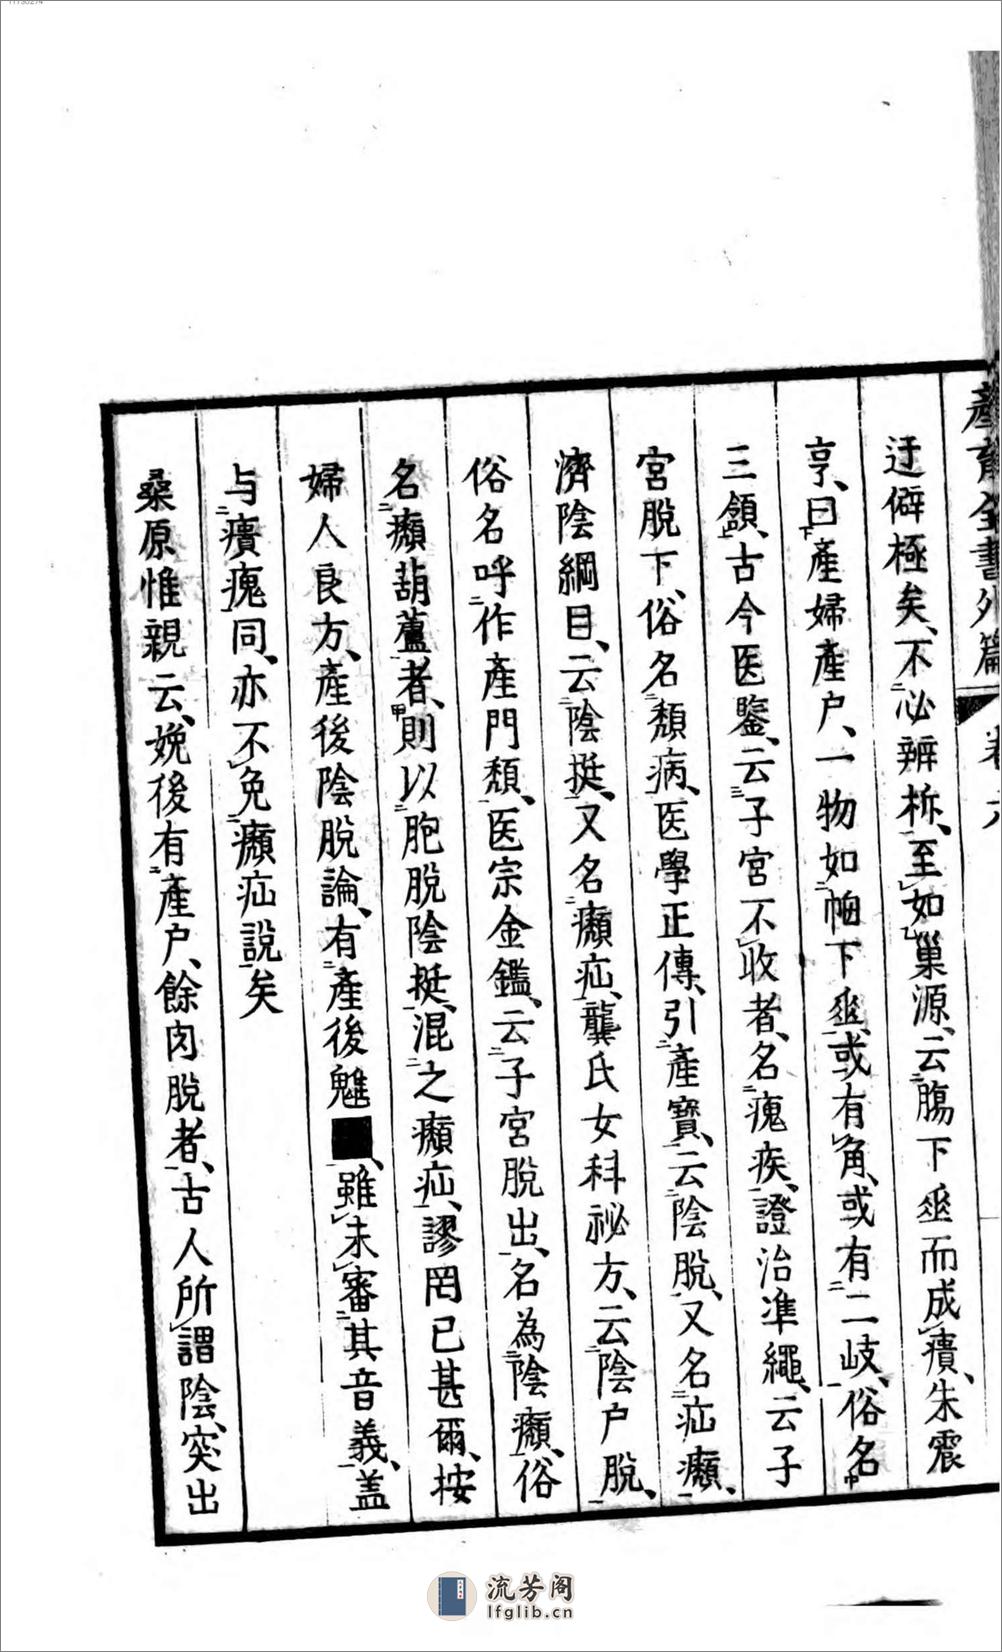 產育全書外篇 卷六
迂僻極矣、不必辨柝、至如巢源、云腸下垂而成㿉、朱震
亨、曰產婦產户、一物如帕下垂、或有角、或有二岐、俗名
三頷、古今医鑒、云子宮不收者、名瘣疾、證治凖繩、云子
宮脫下、俗名頽病、医學正傳、引產寶、云陰脫、又名疝㿗、
濟陰綱目、云陰挺、又名㿗疝、龔氏女科祕方、云陰户脫、
俗名呼作產門頽、医宗金鑑、云子宮脫出、名為陰㿗、俗
名㿗葫蘆者、則以胞脫陰挺、混之㿗疝、謬罔已甚爾、按
婦人良方、產後陰脫論、有產後魋■、雖未審其音義、盖
与㿉瘣同、亦不免㿗疝說矣
桑原惟親云、娩後有產户、餘肉脫者、古人所謂陰、突出
流芳阁
lfglib.cn